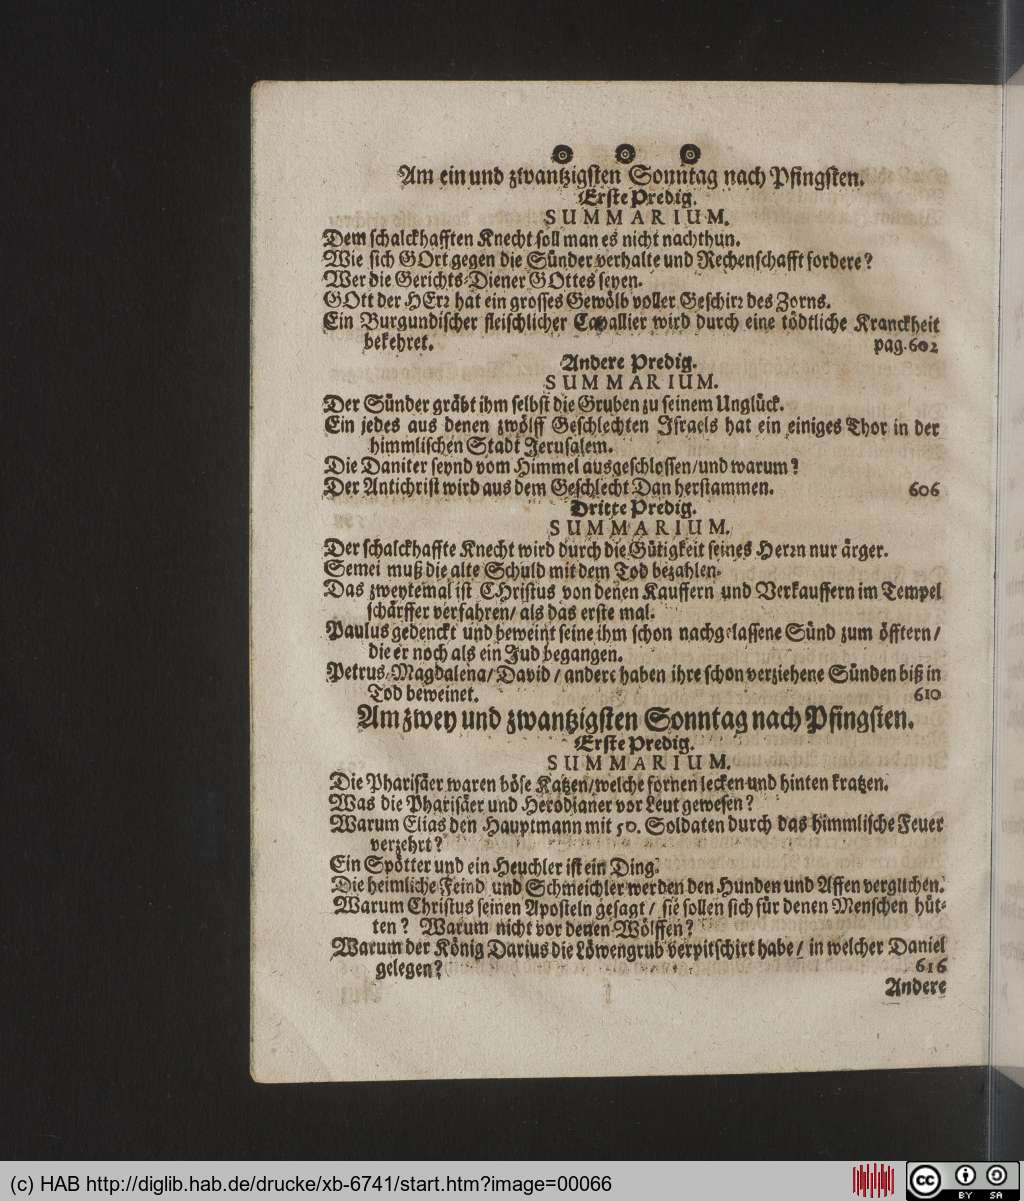 Am ein und zwantzigsten Sonntag nach Pfingsten.
Erste Predig.
SUMMARIUM.
Dem schalckhafften Knecht soll man es nicht nachthun.
Wie sich GOtt gegen die Sünder verhalte und Rechenschafft fordere?
Wer die Gerichts-Diener GOttes seyen.
GOtt der HErr hat ein grosses Gewölb voller Geschirr des Zorns.
Ein Burgundischer fleischlicher Cavallier wird durch eine tödtliche Kranckheit
bekehret. pag. 602
Andere Predig.
SUMMARIUM.
Der Sünder gräbt ihm selbst die Gruben zu seinem Unglück.
Ein jedes aus denen zwölff Geschlechten Israels hat ein einiges Thor in der
himmlischen Stadt Jerusalem.
Die Daniter seynd vom Himmel ausgeschlossen/und warum?
Der Antichrist wird aus dem Geschlecht Dan herstammen. 606
Dritte Predig.
SUMMARIUM.
Der schalckhaffte Knecht wird durch die Gütigkeit seines Herrn nur ärger.
Semei muß die alte Schuld mit dem Tod bezahlen.
Das zweytemal ist CHristus von denen Kauffern und Verkauffern im Tempel
schärffer verfahren/ als das erste mal.
Paulus gedenckt und beweint seine ihm schon nachgelassene Sünd zum öfftern/
die er noch als ein Jud begangen.
Petrus, Magdalena/ David / andere haben ihre schon verziehene Sünden biß in
Tod beweinet. 610
Am zwey und zwantzigsten Sonntag nach Pfingsten.
Erste Predig.
SUMMARIUM.
Die Pharisäer waren böse Katzen/welche fornen lecken und hinten kratzen.
Was die Pharisäer und Herodianer vor Leut gewesen?
Warum Elias den Hauptmann mit 50. Soldaten durch das himmlische Feuer
verzehrt?
Ein Spötter und ein Heuchler ist ein Ding.
Die heimliche Feind und Schmeichler werden den Hunden und Affen verglichen.
Warum Christus seinen Aposteln gesagt / sie sollen sich für denen Menschen hüt-
ten? Warum nicht vor denen Wölffen?
Warum der König Darius die Löwengrub verpitschirt habe/ in welcher Daniel
gelegen? 616
Andere
(c) HAB http://diglib.hab.de/drucke/xb-6741/start.htm?image=00066
cc BY SA